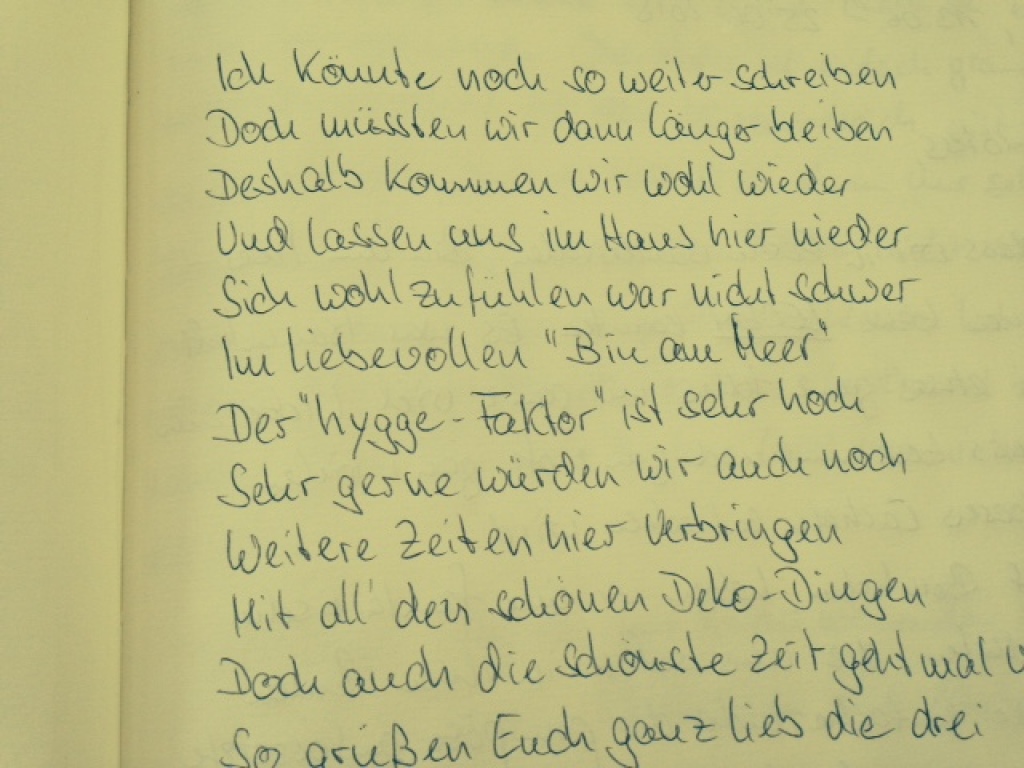 Ich könnte noch so weiter schreiben
Doch müssten wir dann länger bleiben
Deshalb kommen wir wohl wieder
Und lassen uns im Haus hier nieder
Sich wohl zu fühlen war nicht schwer
Im liebevollen "Bin am Meer"
Der "hygge-Faktor" ist sehr hoch
Sehr gerne würden wir auch noch
Weitere Zeiten hier verbringen
Mit all' den schönen Deko-Dingen
Doch auch die schönste Zeit geht mal
So grüßen Euch ganz lieb die drei